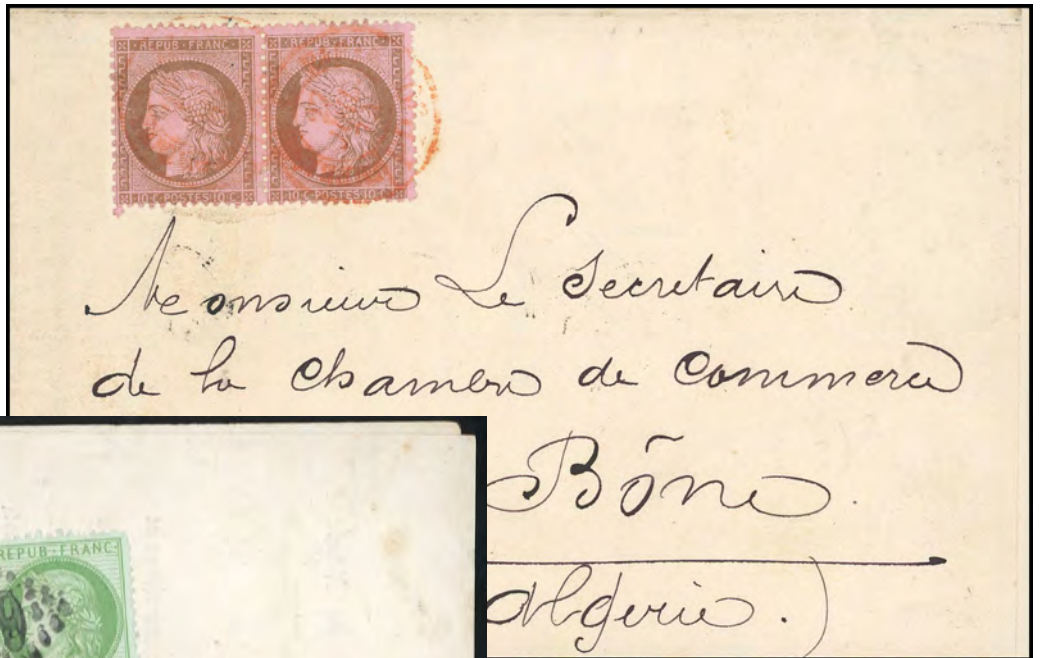 REPUB·FRANC· REPUB·FRANC·
10·C·POSTES·10·C· 10·C·POSTES·10·C·
Monsieur Le Secretaire
de la Chambre de Commerce
Bône.
Algérie.)
REPUB·FRANC·